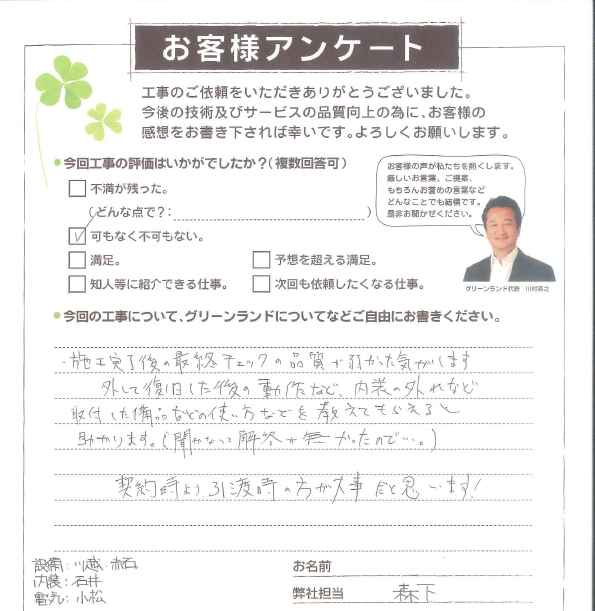 お客様アンケート
工事のご依頼をいただきありがとうございました。
今後の技術及びサービスの品質向上の為に、お客様の
感想をお書き下されば幸いです。よろしくお願いします。
●今回工事の評価はいかがでしたか？（複数回答可）
不満が残った。
（どんな点で？：　　）
☑可もなく不可もない。
満足。
予想を超える満足。
知人等に紹介できる仕事。
次回も依頼したくなる仕事。
お客様の声が私たちを熱くします。
厳しいお言葉、ご提案、
もちろんお誉めの言葉など
どんなことでも結構です。
是非お聞かせください。
グリーンランド代表　川村英之
●今回の工事について、グリーンランドについてなどご自由にお書きください。
・施工完了後の最終チェックの品質が弱かった気がします
外して復旧した後の動作など、内装の外れなど
取付した備品などの使い方などを教えてもらえると
助かります。（聞かないと解答が無かったので…。）
契約時より引渡時の方が大事だと思います！
設備：川越・赤石
内装：石井
電気：小松
お名前
弊社担当　森下